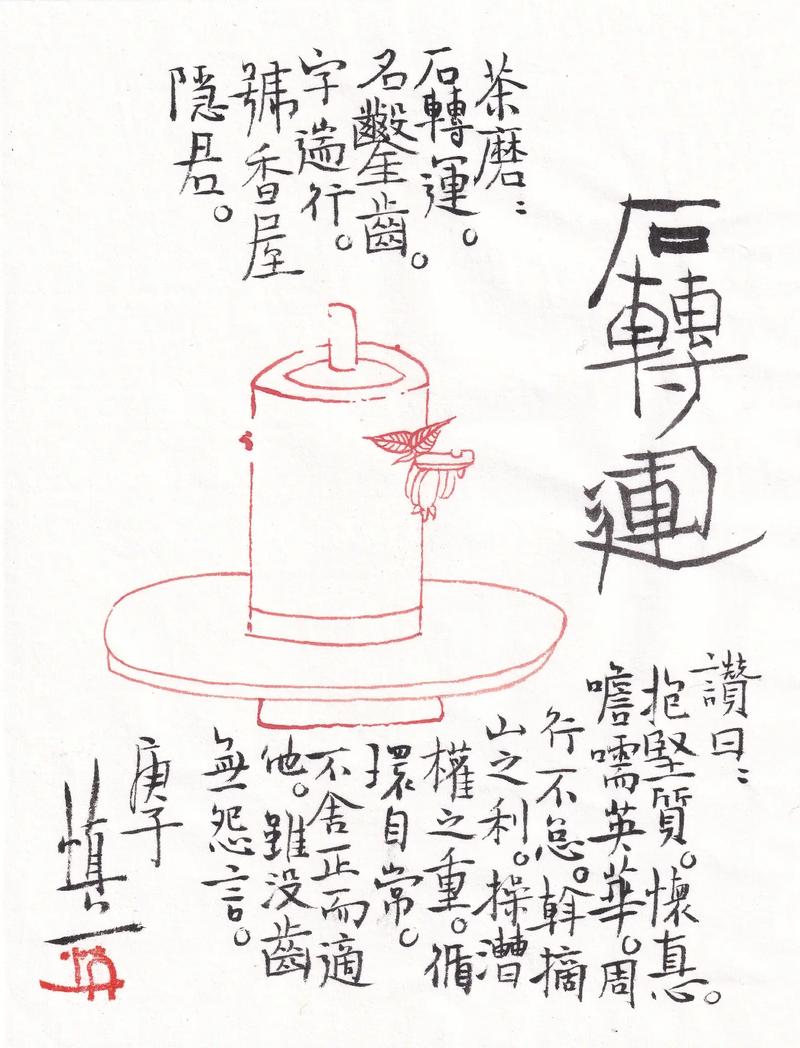 石轉運
茶磨:
石轉運。
名鑿齒。
字遄行。
號香屋
隐君。
讚曰:
抱堅質。懷直心。
噡嚅英華。周
行不怠。斡摘
山之利。操漕
權之重。循
環自常。
不舍正而適
他。雖没齒
無怨言。
庚子
慎一